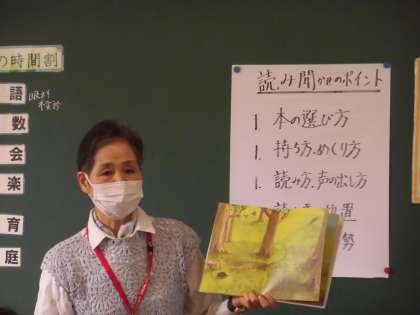 の時間割
語
数
会
楽
育
庭
読み聞かせのポイント
1. 本の選び方
1. 持ち方、めくり方
1. 読み方、声の出し方
置
勢